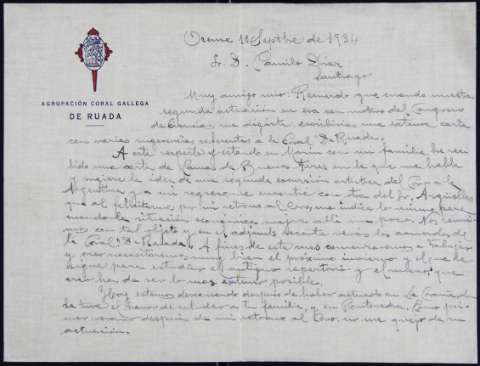 AGRUPACIÓN CORAL GALLEGA
DE RUADA
Orense 18 Septbe de 1934
Sr. D. Camilo Díaz
Santiago
Muy amigo mio: Recuerdo que cuando nuestra
segunda actuación en esa con motivo del Congreso
de Ciencias, me dejiste escribirme una extensa carta
con varias sugerencias referentes a la Coral "De Ruada".
A este respecto y estando en con mi familia, he reci
bido una carta de de B. Aires en la que me habla
y sugiere la idea de una segunda excursión artística del Coro a la
Argentina y a mi regreso me encontré con otra del Sr.
que al felicitarme por mi retorno al Coro, me indica lo mismo,
la situación económica mejor allí a poco. Nos
con tal objeto y en el adjunto verás los acuerdos de
la Coral "De Ruada". A fines de este mes comenzaremos a trabajar
y creo necesitaremos muy bien el próximo invierno y el que le
sigue para estudiar el antiguo repertorio y el nuevo, que
creo ha de ser lo mas extenso posible.
Ahora estamos descansando después de haber actuado en La Coruña donde
tuve el honor de saludar a tu familia, y en Pontevedra. Como pri
mer después de mi retorno al Coro, no me quejo de su
actuación.